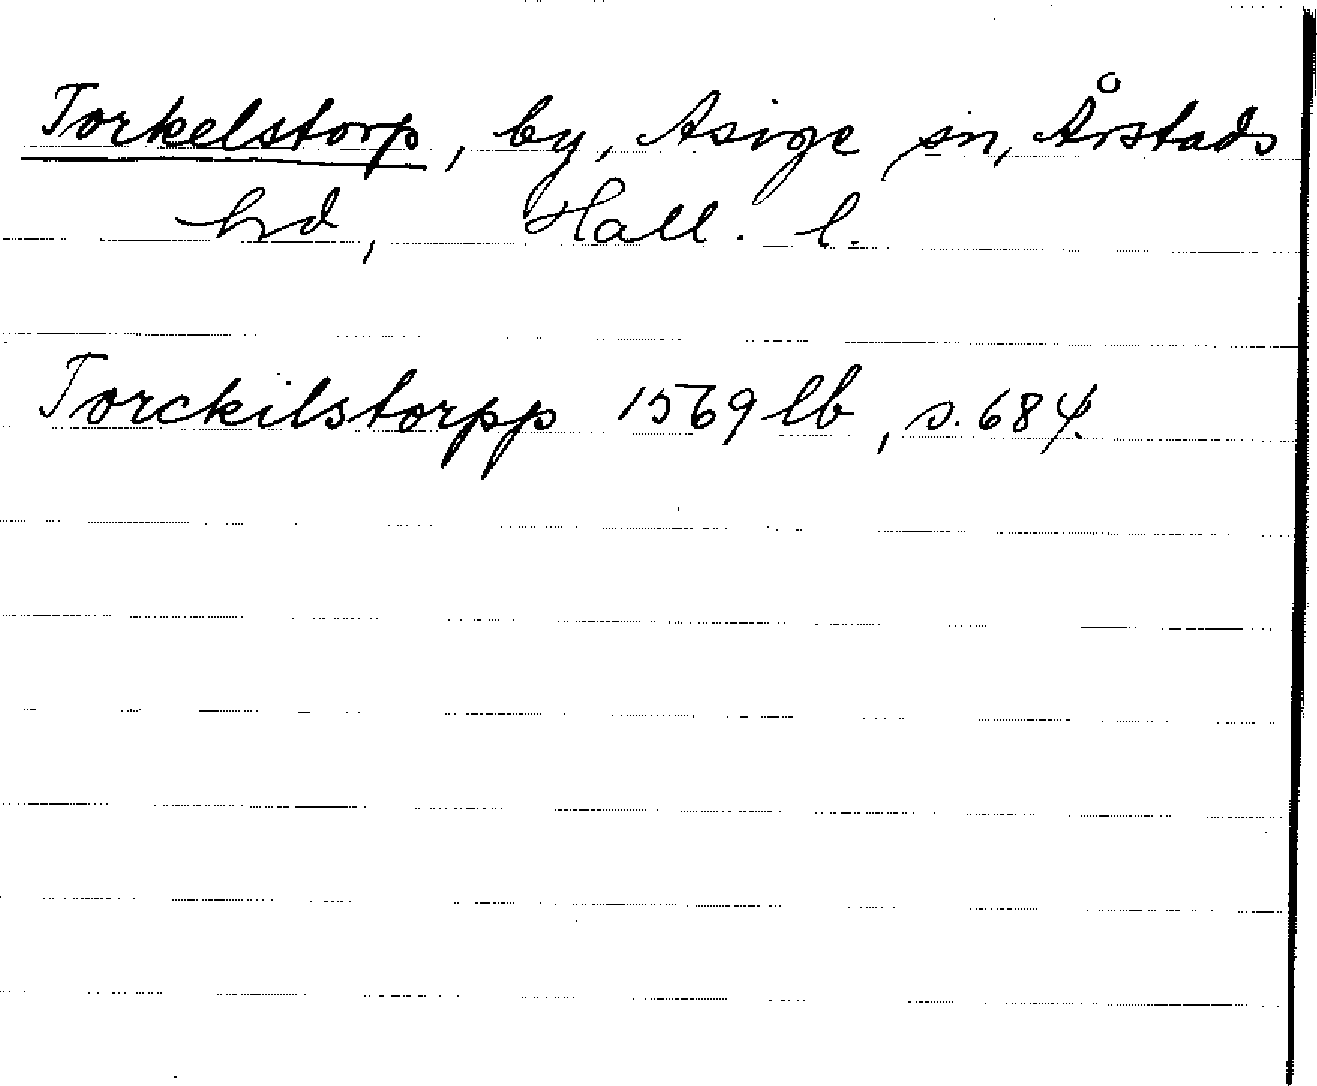 Torkelstorp, by, Asige sn, Årstads
hd, Hall. l.
Torckilstorpp 1569 lb, s. 684.